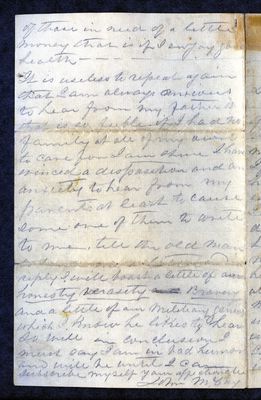 of those in need of a little
money that is if I enjoy go
health — — — — —
It is useless to repeat again
that I am always anxious
to hear from my father &
that is so
family at
to care for I am sure I have
evinced a disposition and an
anxiety to hear from my
parents at least to cause
some one of them to write
to me. tell the old man
reply I will boast a little of our
honesty veracity
and a little of our Military genius
which I know he likes to hear
In conclusion I
must say I am in bad humor
and will be until I can
Subscribe myself your affectionate